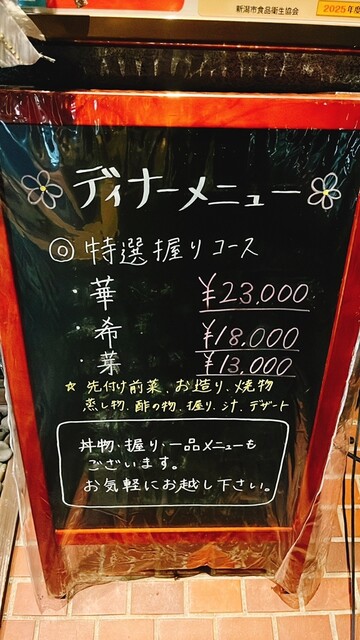 新潟市食品衛生協会
2025年度
ディナーメニュー
◎ 特選握りコース
華 ¥23,000
・希 ¥18,000
・葉 ¥13,000
☆ 先付け前菜、お造り、焼物
蒸し物、酢の物、握り、汁、デザート
丼物・握り・一品メニューも
ございます。
お気軽にお越し下さい。